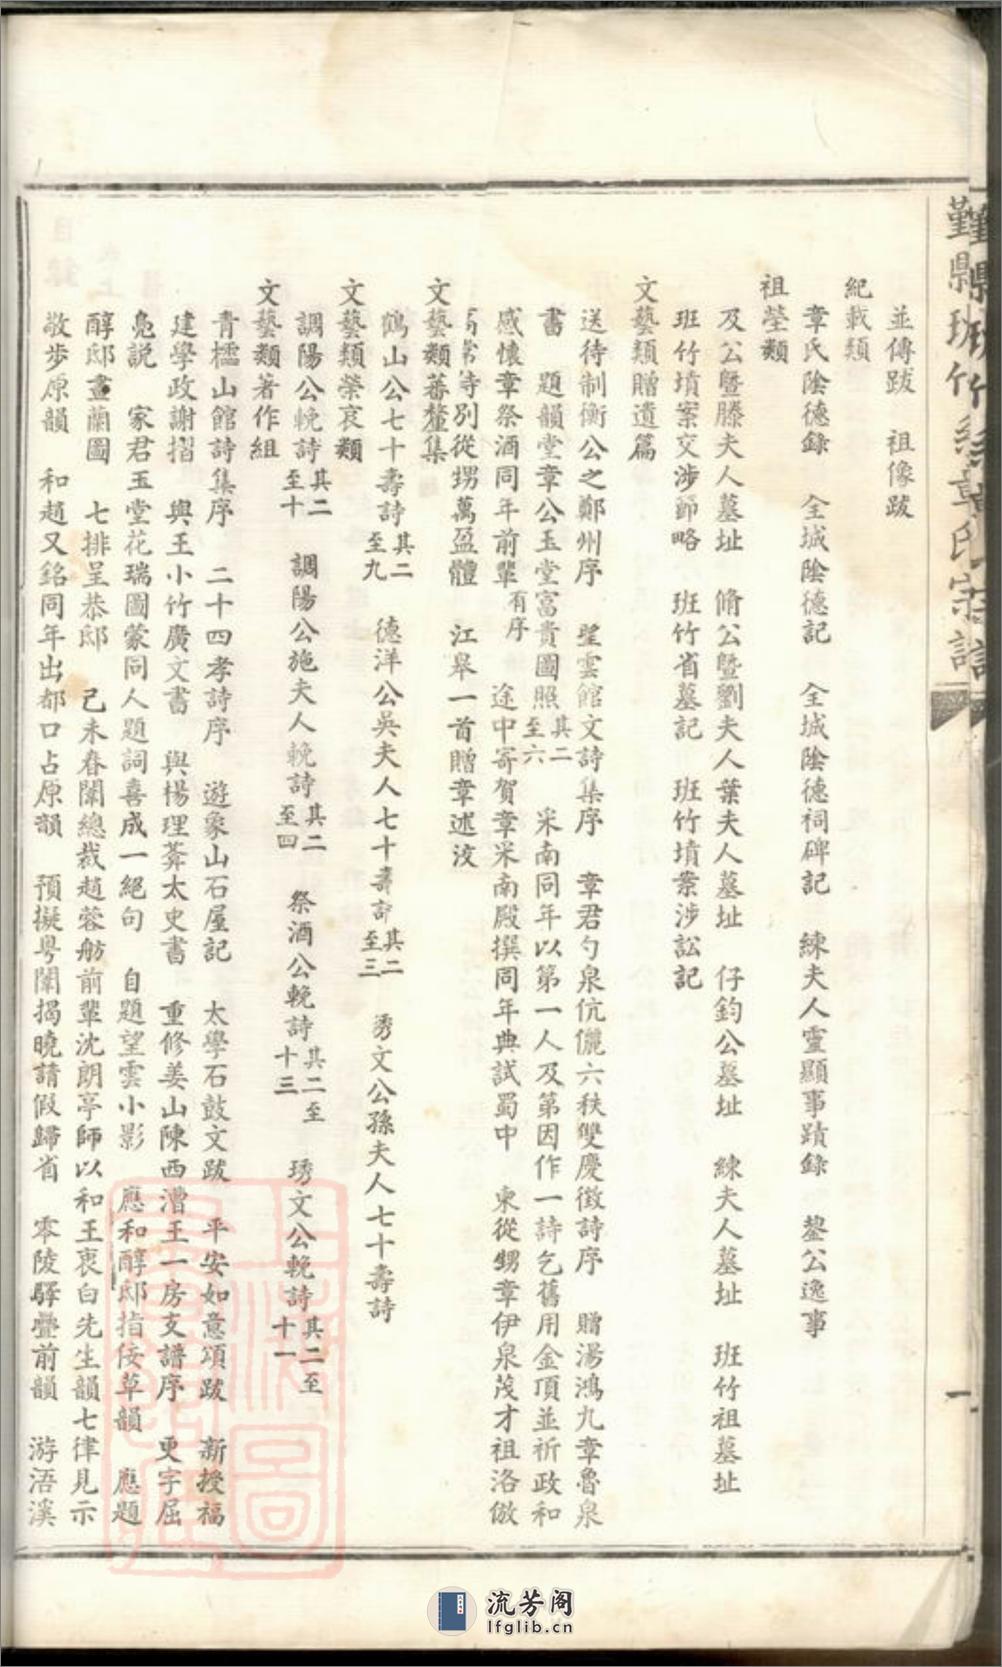 並傳跋　祖像跋
紀載類
章氏陰德錄　全城陰德記　全城陰德祠碑記　練夫人靈顯事蹟錄　鋆公逸事
祖塋類
及公暨滕夫人墓址　脩公暨劉夫人葉夫人墓址　仔鈞公墓址　練夫人墓址　班竹祖墓址
班竹墳案交涉節略　班竹省墓記　班竹墳案涉訟記
文藝類贈遺篇
送待制衡公之鄭州序　望雲館文詩集序　章君勺泉伉儷六秩雙慶徵詩序　贈湯鴻九章魯泉
書　題韻堂章公玉堂富貴圖照其二至六　采南同年以第一人及第因作一詩乞舊用金頂並祈政和
感懷章祭酒同年前輩有序　途中寄賀章采南殿撰同年典試蜀中　柬從甥章伊泉茂才祖洛倣
詩別從甥萬盈體　江皋一首贈章述汥
文藝類蕃釐集
鶴山公七十壽詩其二至九　德洋公吳夫人七十壽詩其二至三　秀文公孫夫人七十壽詩
文藝類榮哀類
調陽公輓詩其二至十　調陽公施夫人輓詩其二至四　祭酒公輓詩其二至十三　琇文公輓詩其二至十一
文藝類著作組
青櫺山館詩集序　二十四孝詩序　遊象山石屋記　太學石鼓文跋　平安如意頌跋　新授福
建學政謝摺　與王小竹廣文書　與楊理菴太史書　重修姜山陳西漕王一房支譜序　更字屈
鳧說　家君玉堂花瑞圖蒙同人題詞喜成一絕句　自題望雲小影　應和醇邸指佞草韻　應題
醇邸畫蘭圖　七排呈恭邸　己未春闈總裁趙蓉舫前輩沈朗亭師以和王衷白先生韻七律見示
敬步原韻　和趙又銘同年出都口占原韻　預擬粵闈揭曉請假歸省　零陵驛疊前韻　游浯溪
鄞縣班竹章氏宗譜
一
流芳阁
lfglib.cn